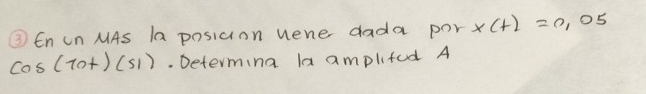 ③ En un MAS la posicion viene dada por x(t) = 0,05
cos (10t) (SI). Determina la amplitud A